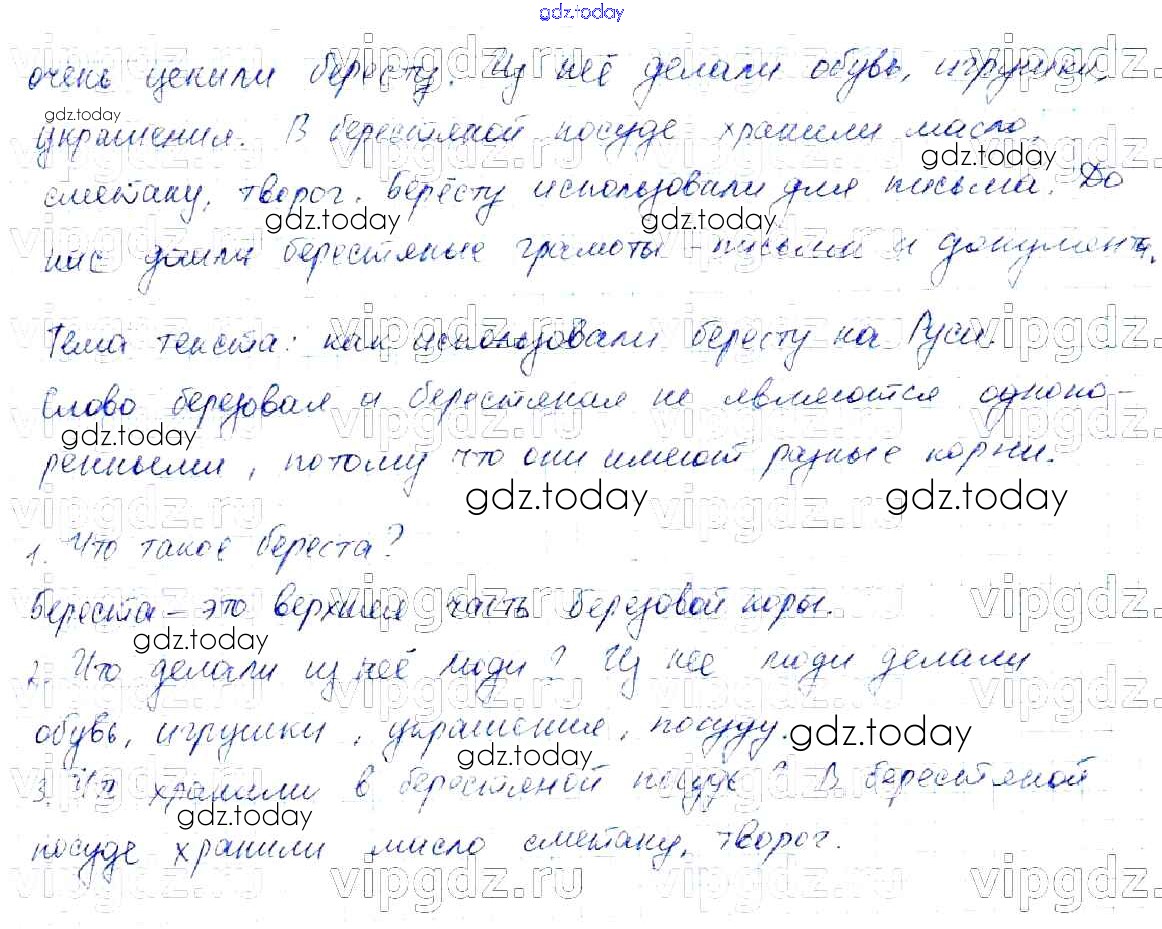 gdz.today
очень ценили бересту. Из неё делали обувь, игрушки,
украшения. В берестяной посуде хранили масло,
сметану, творог. Бересту использовали для письма. До
нас дошли берестяные грамоты - письма и документы.
Тема текста: как использовали бересту на Руси.
Слово березовая и берестяная не являются одноко-
ренными, потому что они имеют разные корни.
1. Что такое береста?
Береста – это верхняя часть березовой коры.
2. Что делали из неё люди? Из нее люди делали
обувь, игрушки, украшения, посуду.
3. Что хранили в берестяной посуде? В берестяной
посуде хранили масло сметану, творог.